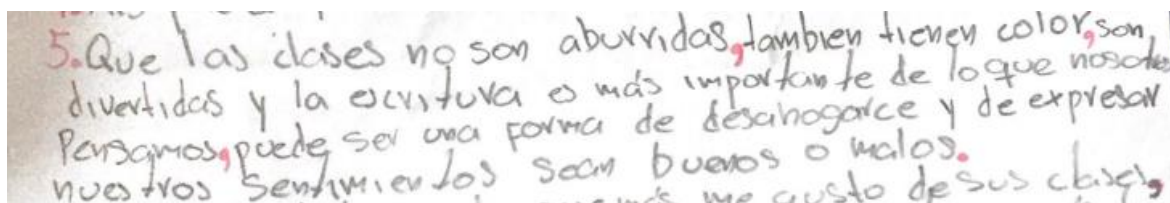 5. Que las clases no son aburridas, tambien tienen color, son
divertidas y la escritura es más importante de lo que nosotros
Pensamos, puede ser una forma de desahogarce y de expresar
nuestros sentimientos sean buenos o malos.
me gusto de sus clases,